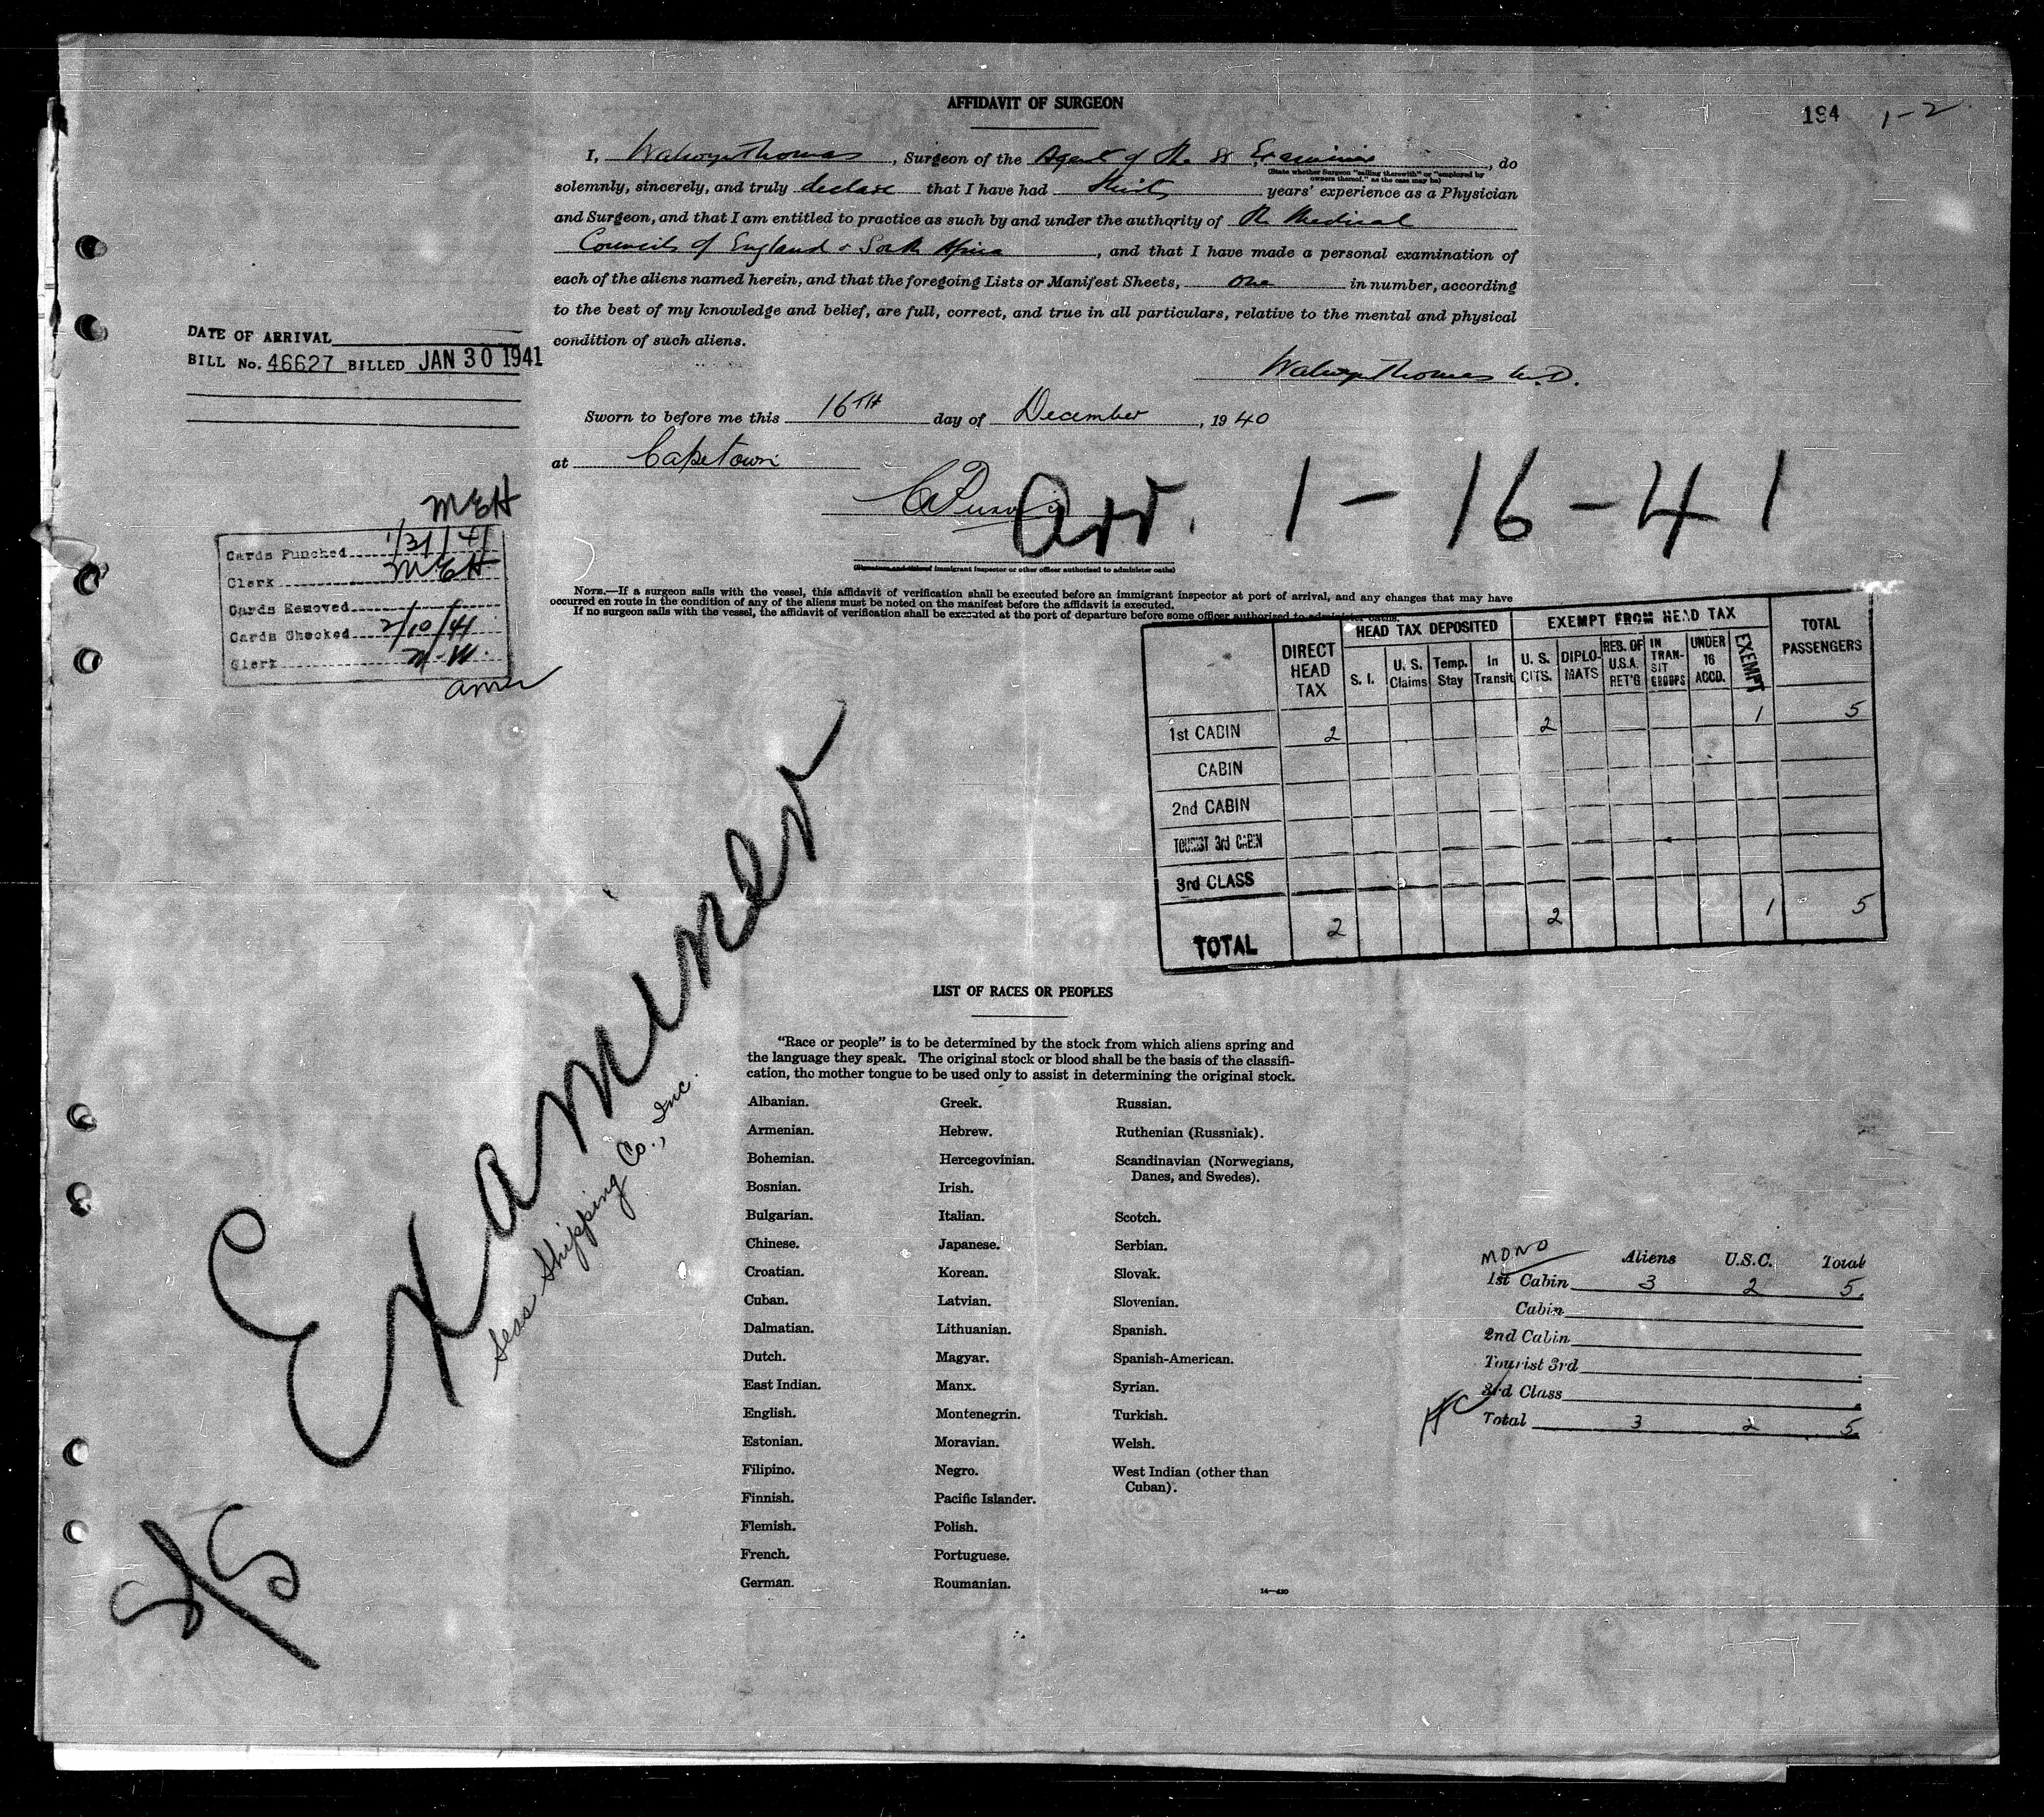 AFFIDAVIT OF SURGEON
194 1-2
I, Walwyn Thomas, Surgeon of the Agent of the SS Examiner, do
(State whether Surgeon "sailing therewith" or "employed by
owners thereof," as the case may be)
solemnly, sincerely, and truly declare that I have had thirty years' experience as a Physician
and Surgeon, and that I am entitled to practice as such by and under the authority of the Medical
Councils of England & South Africa, and that I have made a personal examination of
each of the aliens named herein, and that the foregoing Lists or Manifest Sheets, one in number, according
to the best of my knowledge and belief, are full, correct, and true in all particulars, relative to the mental and physical
condition of such aliens.
Walwyn Thomas M.D.
DATE OF ARRIVAL
BILL No. 46627 BILLED JAN 30 1941
Sworn to before me this 16TH day of December, 1940
at Capetown
arr. 1-16-41
immigrant inspector or other officer authorized to administer oaths)
NOTE.—If a surgeon sails with the vessel, this affidavit of verification shall be executed before an immigrant inspector at port of arrival, and any changes that may have
occurred en route in the condition of any of the aliens must be noted on the manifest before the affidavit is executed.
If no surgeon sails with the vessel, the affidavit of verification shall be executed at the port of departure before some officer authorized to administer oaths.
MEH
Cards Punched 1/31/41
Clerk MEH
Cards Removed
Cards Checked 2/10/41
Clerk M.W.
DIRECT HEAD TAX
HEAD TAX DEPOSITED
S. I.
U. S. Claims
Temp. Stay
In Transit
EXEMPT FROM HEAD TAX
U. S. CITS.
DIPLOMATS
RES. OF U.S.A. RET'G
IN TRANSIT GROUPS
UNDER 16 ACCD.
EXEMPT
TOTAL PASSENGERS
1st CABIN 2 2 1 5
CABIN
2nd CABIN
TOURIST 3rd CABIN
3rd CLASS
TOTAL 2 2 1 5
Examiner
Seas Shipping Co., Inc.
S/S
LIST OF RACES OR PEOPLES
"Race or people" is to be determined by the stock from which aliens spring and
the language they speak. The original stock or blood shall be the basis of the classifi-
cation, the mother tongue to be used only to assist in determining the original stock.
Albanian.
Armenian.
Bohemian.
Bosnian.
Bulgarian.
Chinese.
Croatian.
Cuban.
Dalmatian.
Dutch.
East Indian.
English.
Estonian.
Filipino.
Finnish.
Flemish.
French.
German.
Greek.
Hebrew.
Hercegovinian.
Irish.
Italian.
Japanese.
Korean.
Latvian.
Lithuanian.
Magyar.
Manx.
Montenegrin.
Moravian.
Negro.
Pacific Islander.
Polish.
Portuguese.
Roumanian.
Russian.
Ruthenian (Russniak).
Scandinavian (Norwegians,
Danes, and Swedes).
Scotch.
Serbian.
Slovak.
Slovenian.
Spanish.
Spanish-American.
Syrian.
Turkish.
Welsh.
West Indian (other than
Cuban).
14—420
MONO
Aliens U.S.C. Total
1st Cabin 3 2 5
Cabin
2nd Cabin
Tourist 3rd
3rd Class
Total 3 2 5